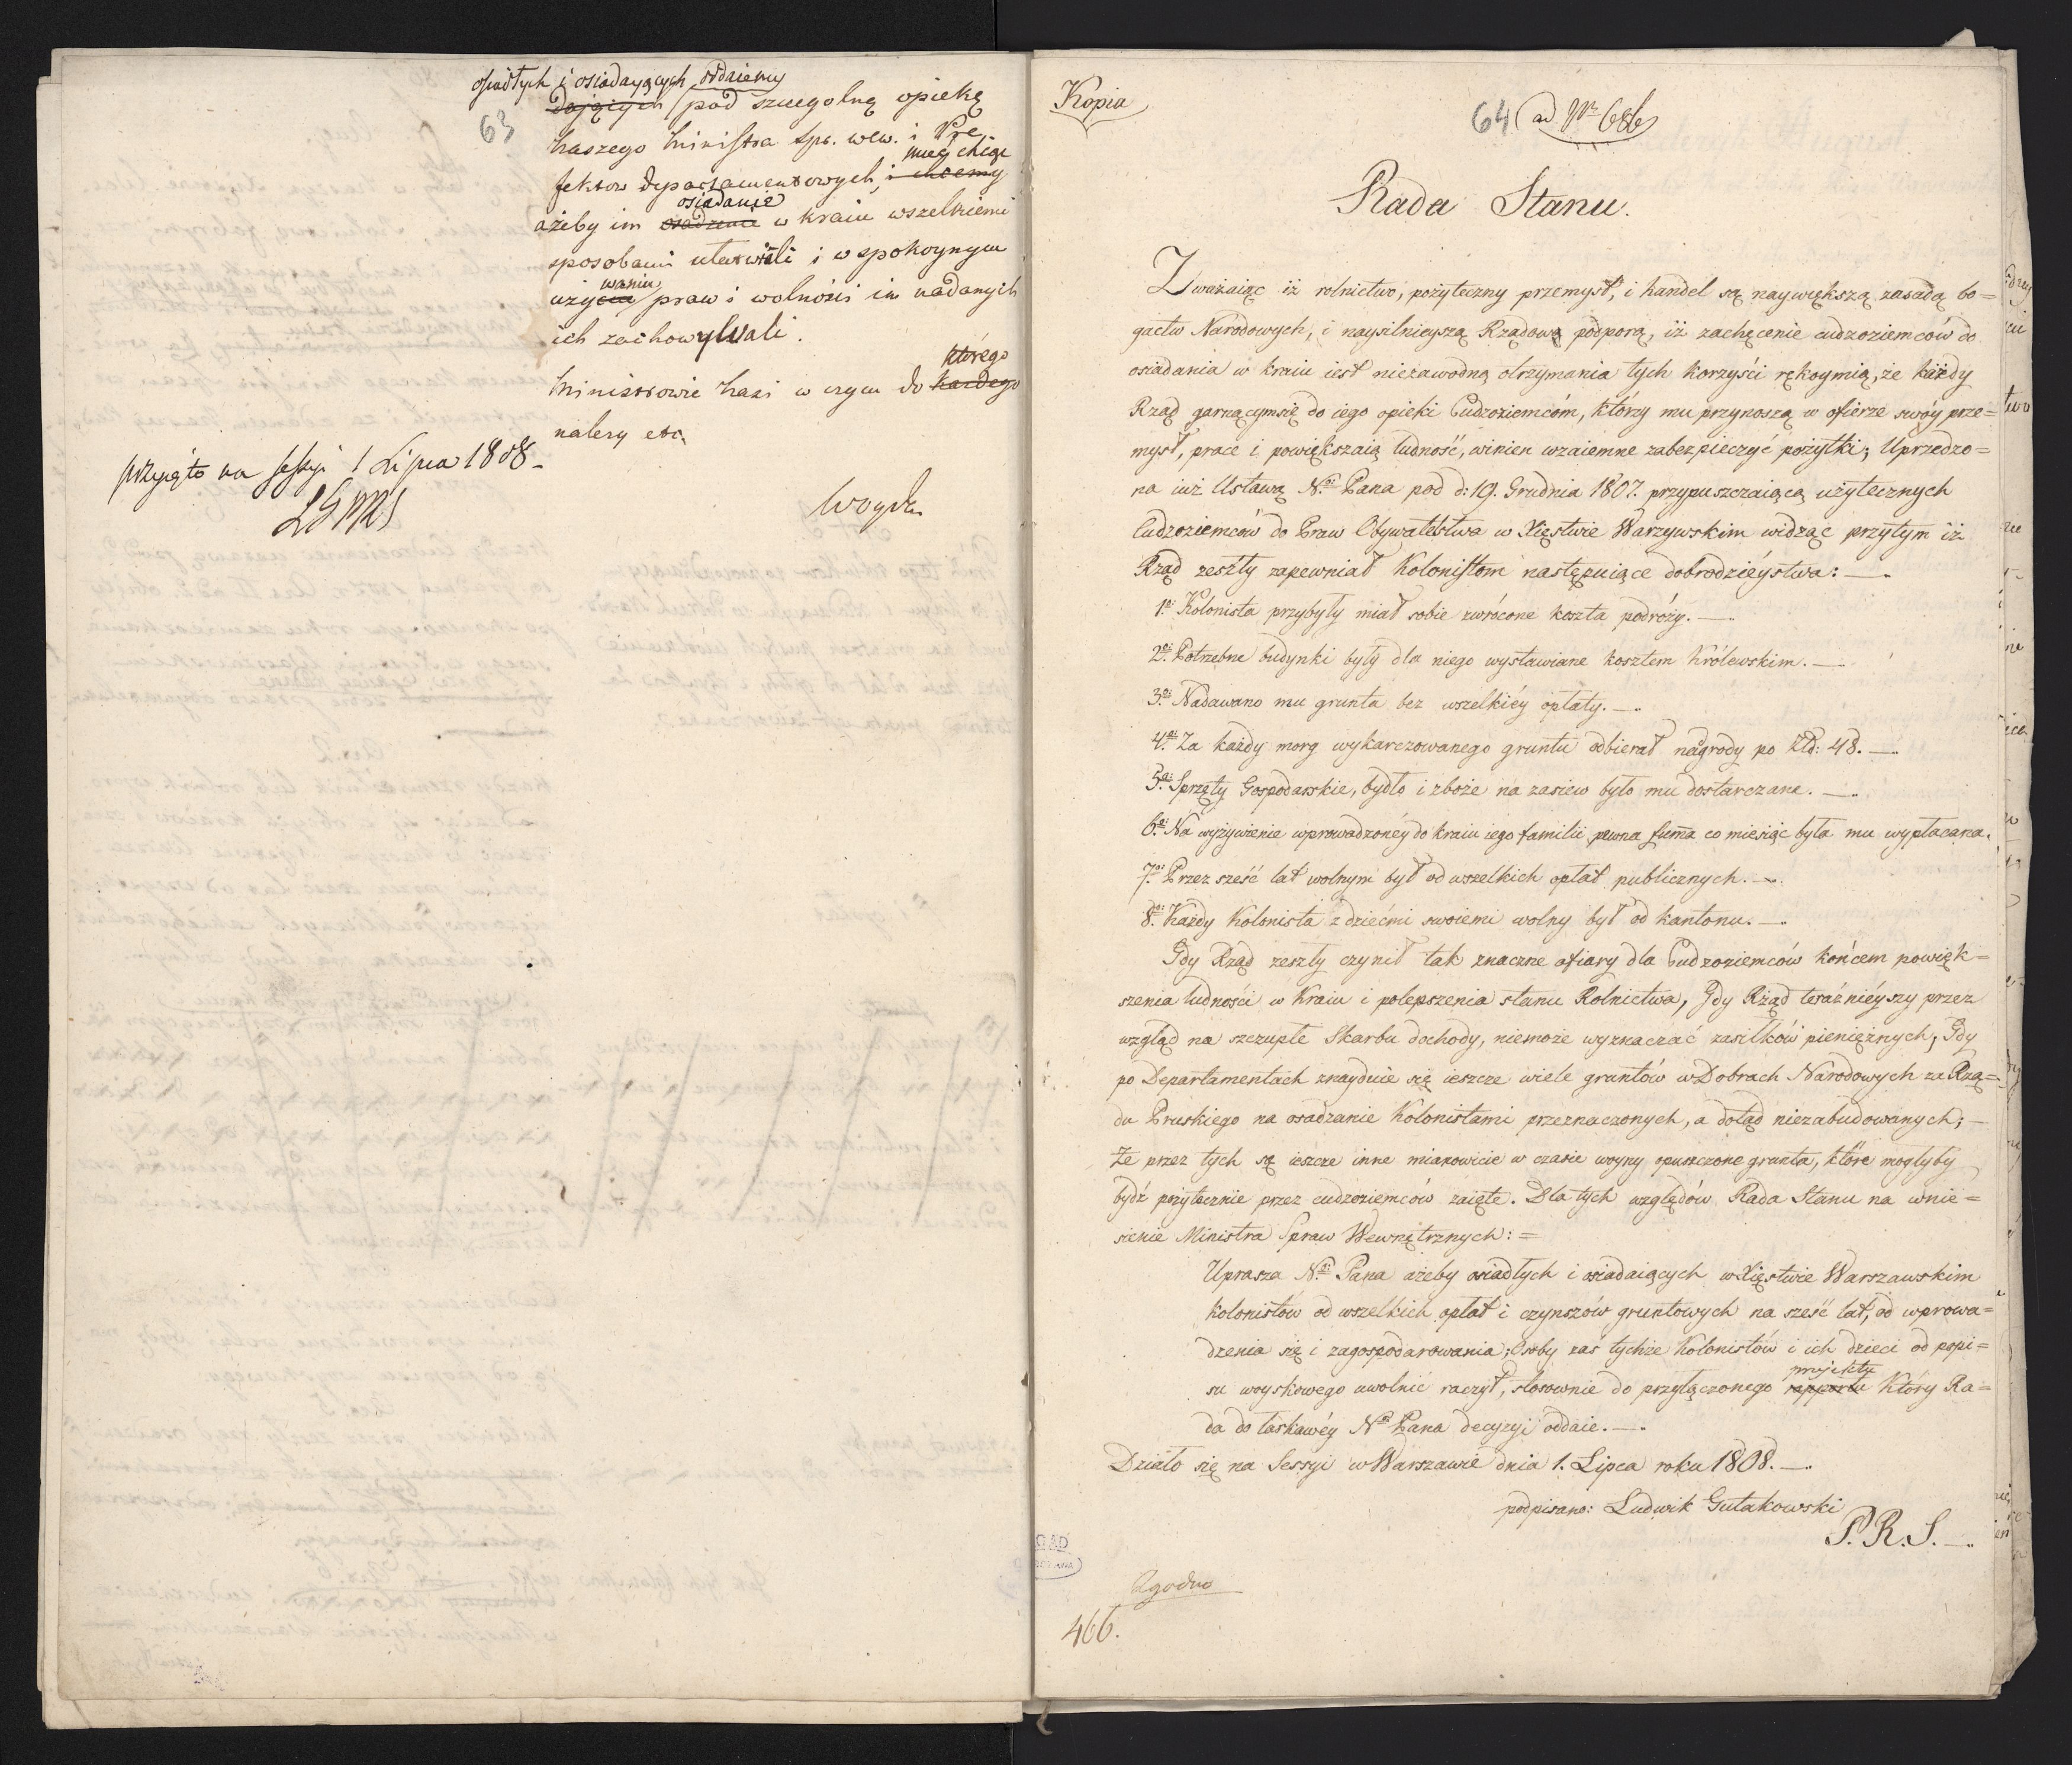 osiadłych i osiadaiących oddaiemy
daiących pod szczegolną opiekę
63
Naszego Ministra Spr. wew. i Pre
mieć chcąc
fektow departamentowych, i chcemy
osiadanie
ażeby im osadzenie w kraiu wszelkiemi
sposobami ułatwiali i w spokoynym
waniu
użyciu praw i wolności im nadanych
ich zachowywali.
którego
Ministrowie Nasi w czym do każdego
należy etc.
przyjęto na sessyi 1 Lipca 1808 –
LGPRS
Kopia
64 ad Nr 686
Rada Stanu.
Zważaiąc iż rolnictwo, pożyteczny przemysł, i handel są naywiększą zasadą bo=
gactw Narodowych, i naysilnieyszą Rządową podporą, iż zachęcenie cudzoziemców do
osiadania w kraiu iest niezawodną otrzymania tych korzyści rękoymią, że każdy
Rząd garnącymsię do iego opieki Cudzoziemcóm, którzy mu przynoszą w ofierze swóy prze=
mysł, prace i powiększaią ludność, winien wzaiemne zabezpieczyć pożytki; Uprzedzo=
na iuż Ustawą N. Pana pod d: 19. Grudnia 1807. przypuszczaiącą użytecznych
Cudzoziemców do Praw Obywatelstwa w Xięstwie Warszawskim widząc przytym iż
Rząd zeszły zapewniał Kolonistom następuiące dobrodzieystwa: —
1. Kolonista przybyły miał sobie zwrócone koszta podróży. —
2. Potrzebne budynki były dla niego wystawiane kosztem Królewskim. —
3. Nadawano mu grunta bez wszelkiéy opłaty. —
4. Za każdy morg wykarczowanego gruntu odbierał nagrody po Złd: 48. —
5. Sprzęty Gospodarskie, bydło i zboże na zasiew było mu dostarczane. —
6. Na wyżywienie wprowadzonéy do kraiu iego familii pewna summa co miesiąc była mu wypłacana.
7. Przez sześć lat wolnym był od wszelkich opłat publicznych. —
8. Każdy Kolonista z dziećmi swoiemi wolny był od kantonu. —
Gdy Rząd zeszły czynił tak znaczne ofiary dla Cudzoziemców końcem powięk=
szenia ludności w Kraiu i polepszenia stanu Rolnictwa, Gdy Rząd teraźnieyszy przez
wzgląd na szczupłe Skarbu dochody, niemoże wyznaczać zasiłków pieniężnych, Gdy
po Departamentach znayduie się ieszcze wiele gruntów w Dobrach Narodowych za Rzą=
du Pruskiego na osadzanie Kolonistami przeznaczonych, a dotąd niezabudowanych; —
Że przez tych są ieszcze inne mianowicie w czasie woyny opuszczone grunta, które mogłyby
bydź pożytecznie przez cudzoziemców zaięte. Dla tych względów Rada Stanu na wnie=
sienie Ministra Spraw Wewnętrznych: =
Uprasza N. Pana ażeby osiadłych i osiadaiących w Xięstwie Warszawskim
kolonistów od wszelkich opłat i czynszów gruntowych na sześć lat, od wprowa=
dzenia się i zagospodarowania; Osoby zaś tychże Kolonistów i ich dzieci od popi=
su woyskowego uwolnić raczył, stosownie do przyłączonego rapportu Który Ra=
projektu
da do łaskawéy N. Pana decyzyi oddaie. —
Działo się na Sessyi w Warszawie dnia 1. Lipca roku 1808. —
podpisano: Ludwik Gutakowski
P. R. S. —
Zgodno
466.